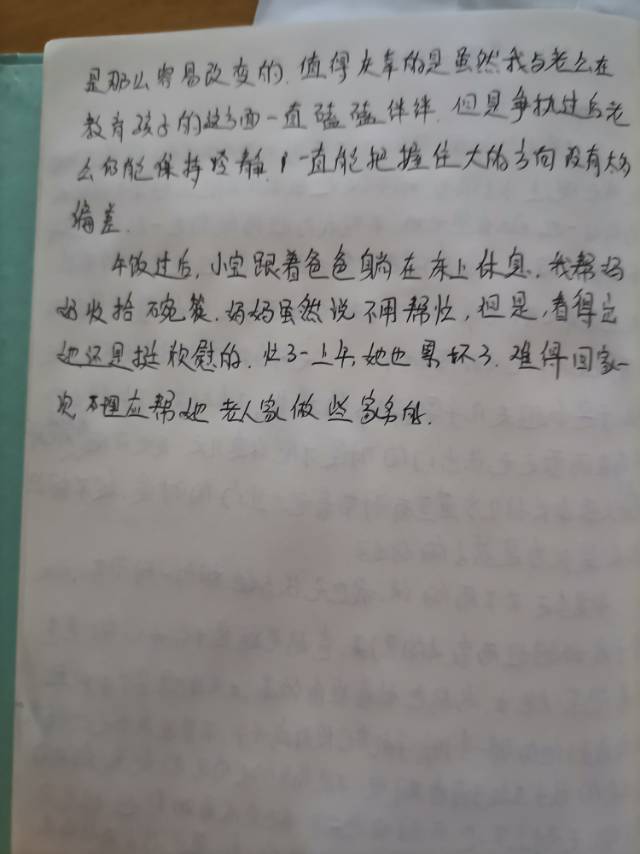 是那么容易改变的.值得庆幸的是虽然我与老公在
教育孩子的这方面一直磕磕伴绊.但是争执过后老
公仍能保持冷静,一直能把握住大的方向没有太多
偏差.
午饭过后,小宝跟着爸爸躺在床上休息.我帮妈
妈收拾碗筷.妈妈虽然说不用帮忙,但是,看得出
她还是挺欣慰的.忙了一上午,她也累坏了.难得回家一
次理应帮她老人家做些家务的.